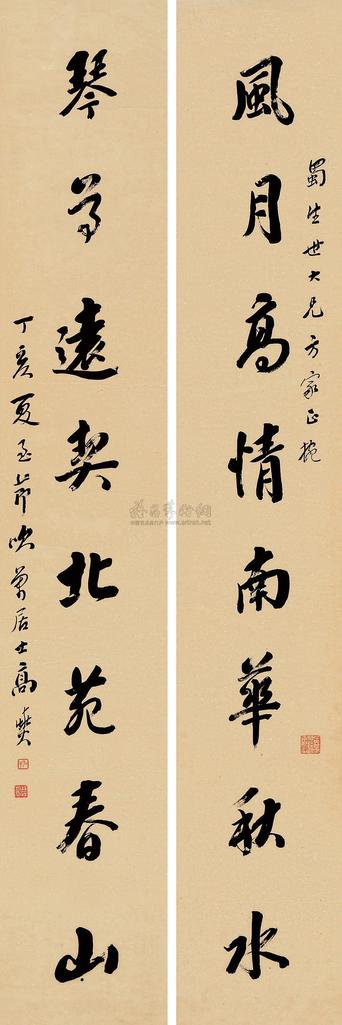 蜀生世大兄方家正捥
風月高情南華秋水
琴尊遠契北苑春山
丁亥夏至節吹萬居士高燮